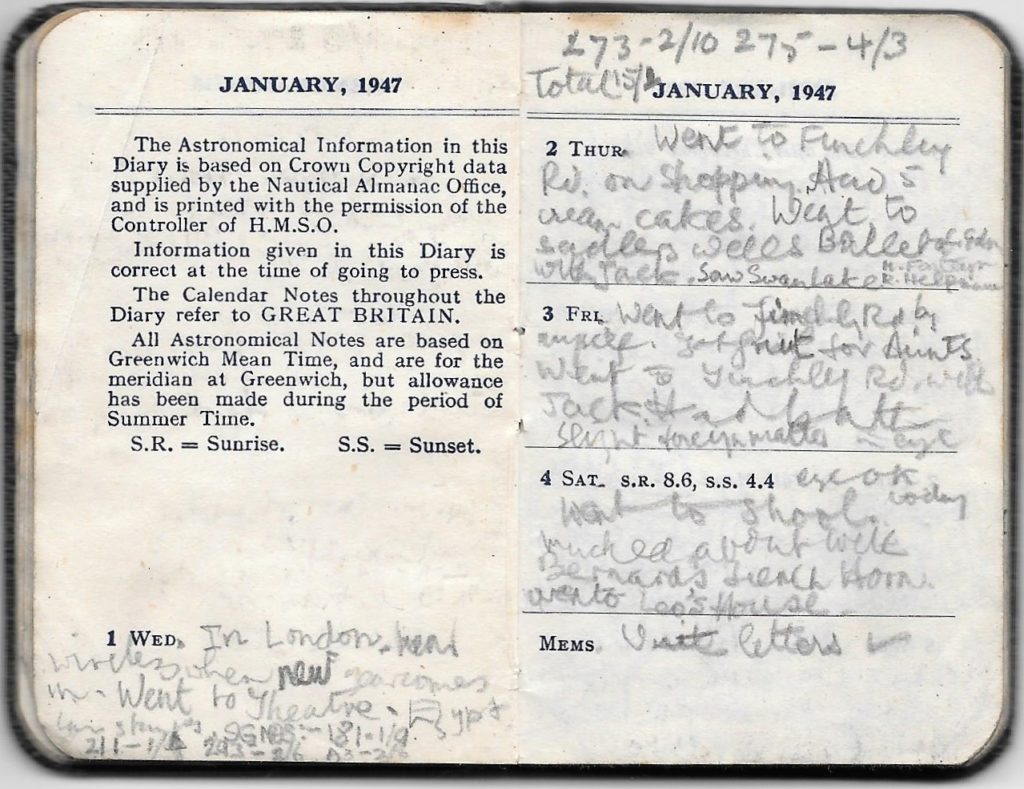 JANUARY, 1947
The Astronomical Information in this
Diary is based on Crown Copyright data
supplied by the Nautical Almanac Office,
and is printed with the permission of the
Controller of H.M.S.O.
Information given in this Diary is
correct at the time of going to press.
The Calendar Notes throughout the
Diary refer to GREAT BRITAIN.
All Astronomical Notes are based on
Greenwich Mean Time, and are for the
meridian at Greenwich, but allowance
has been made during the period of
Summer Time.
S.R. = Sunrise. S.S. = Sunset.
1 WED. In London. hear
wireless when new year comes
in. Went to Theatre. Egypt
181-1/9
211-1/
273-2/10 275-4/3
Total
JANUARY, 1947
2 THUR. Went to Finchley
Rd. on Shopping. Had 5
cream cakes. Went to
sadlers wells Ballet
with Jack. Saw Swan Lake R. Helpmann
3 FRI. Went to Finchley Rd by
myself. got fruit for Aunts.
Went to Finchley Rd. with
Jack. Had bath
Slight foreign matter in eye
4 SAT. S.R. 8.6, S.S. 4.4 eye OK
today
Went to Shool.
mucked about with
Bernard's French Horn.
went to Leo's House.
MEMS letters